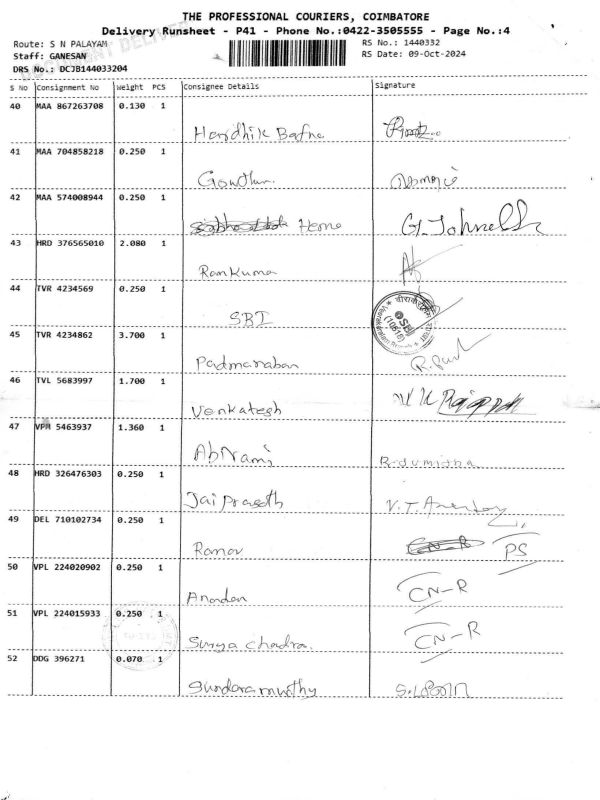 THE PROFESSIONAL COURIERS, COIMBATORE
Delivery Runsheet - P41 - Phone No.:0422-3505555 - Page No.:4
Route: S N PALAYAM
RS No.: 1440332
Staff: GANESAN
RS Date: 09-Oct-2024
DRS No.: DCJB144033204
S No Consignment No Weight PCS Consignee Details Signature
40 MAA 867263708 0.130 1
Hardhik Bafna
41 MAA 704858218 0.250 1
Gowtham
42 MAA 574008944 0.250 1
Home G. Johnell
43 HRD 376565010 2.080 1
Ramkuma
44 TVR 4234569 0.250 1
SBI
45 TVR 4234862 3.700 1
Padmanaban
46 TVL 5683997 1.700 1
Venkatesh
47 VPM 5463937 1.360 1
AbiNami
48 HRD 326476303 0.250 1
Jai prasath V.T.
49 DEL 710102734 0.250 1
Raman CN-R PS
50 VPL 224020902 0.250 1
Anandan CN-R
51 VPL 224015933 0.250 1
Surya Chadra. CN-R
52 DDG 396271 0.070 1
Sundaramurthy